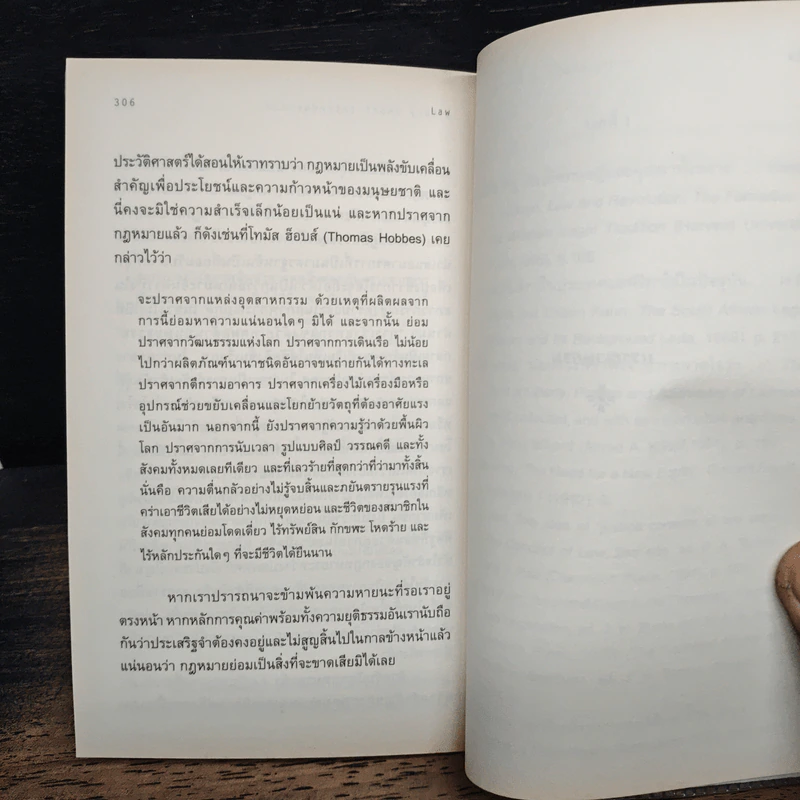 306
Law
ประวัติศาสตร์ได้สอนให้เราทราบว่า กฎหมายเป็นพลังขับเคลื่อน
สำคัญเพื่อประโยชน์และความก้าวหน้าของมนุษยชาติ และ
นี่คงจะมิใช่ความสำเร็จเล็กน้อยเป็นแน่ และหากปราศจาก
กฎหมายแล้ว ก็ดังเช่นที่โทมัส ฮ็อบส์ (Thomas Hobbes) เคย
กล่าวไว้ว่า
จะปราศจากแหล่งอุตสาหกรรม ด้วยเหตุที่ผลิตผลจาก
การนี้ย่อมหาความแน่นอนใดๆ มิได้ และจากนั้น ย่อม
ปราศจากวัฒนธรรมแห่งโลก ปราศจากการเดินเรือ ไม่น้อย
ไปกว่าผลิตภัณฑ์นานาชนิดอันอาจขนถ่ายกันได้ทางทะเล
ปราศจากตึกรามอาคาร ปราศจากเครื่องไม้เครื่องมือหรือ
อุปกรณ์ช่วยขยับเคลื่อนและโยกย้ายวัตถุที่ต้องอาศัยแรง
เป็นอันมาก นอกจากนี้ ยังปราศจากความรู้ว่าด้วยพื้นผิว
โลก ปราศจากการนับเวลา รูปแบบศิลป์ วรรณคดี และทั้ง
สังคมทั้งหมดเลยทีเดียว และที่เลวร้ายที่สุดกว่าที่ว่ามาทั้งสิ้น
นั่นคือ ความตื่นกลัวอย่างไม่รู้จบสิ้นและภยันตรายรุนแรงที่
คร่าเอาชีวิตเสียได้อย่างไม่หยุดหย่อน และชีวิตของสมาชิกใน
สังคมทุกคนย่อมโดดเดี่ยว ไร้ทรัพย์สิน กักขฬะ โหดร้าย และ
ไร้หลักประกันใดๆ ที่จะมีชีวิตได้ยืนนาน
หากเราปรารถนาจะข้ามพ้นความหายนะที่รอเราอยู่
ตรงหน้า หากหลักการคุณค่าพร้อมทั้งความยุติธรรมอันเรานับถือ
กันว่าประเสริฐจำต้องคงอยู่และไม่สูญสิ้นไปในกาลข้างหน้าแล้ว
แน่นอนว่า กฎหมายย่อมเป็นสิ่งที่จะขาดเสียมิได้เลย